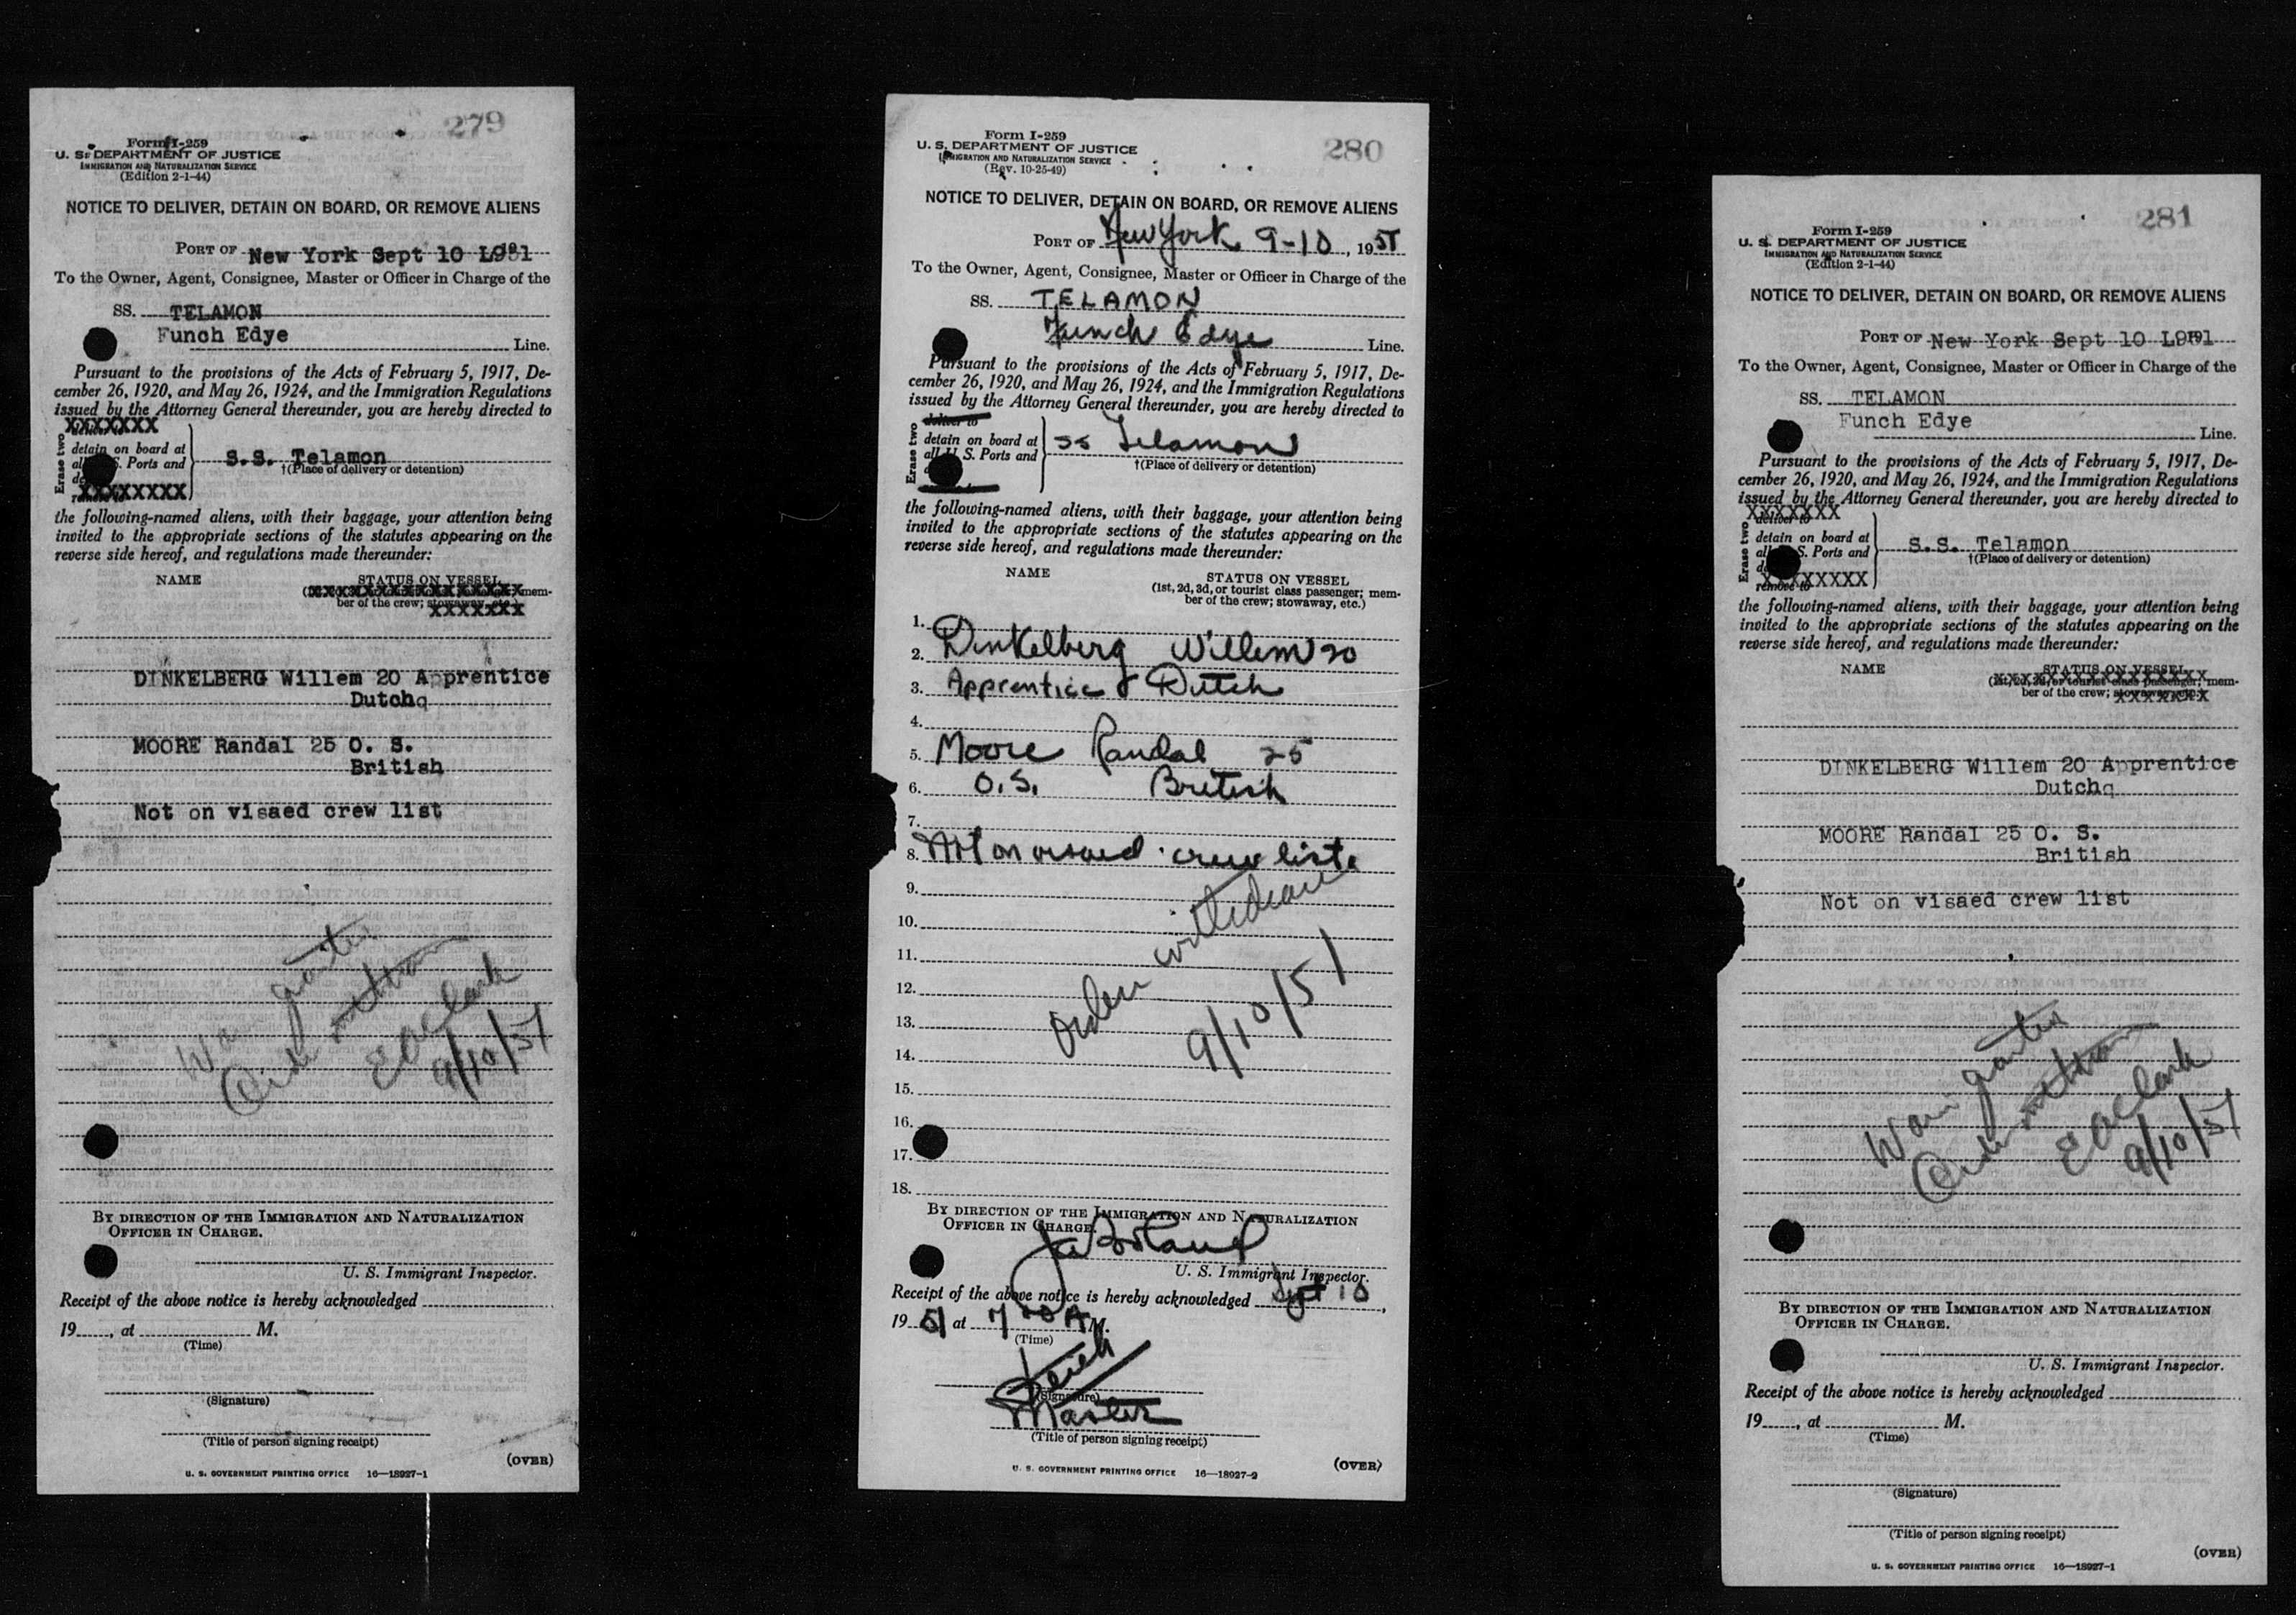 279
Form I-259
U. S. DEPARTMENT OF JUSTICE
IMMIGRATION AND NATURALIZATION SERVICE
(Edition 2-1-44)
NOTICE TO DELIVER, DETAIN ON BOARD, OR REMOVE ALIENS
PORT OF New York Sept 10 L951
To the Owner, Agent, Consignee, Master or Officer in Charge of the
SS. TELAMON
Funch Edye Line.
Pursuant to the provisions of the Acts of February 5, 1917, De-
cember 26, 1920, and May 26, 1924, and the Immigration Regulations
issued by the Attorney General thereunder, you are hereby directed to
XXXXXXX
Erase two
detain on board at
all U. S. Ports and
S.S. Telamon
†(Place of delivery or detention)
XXXXXXXX
the following-named aliens, with their baggage, your attention being
invited to the appropriate sections of the statutes appearing on the
reverse side hereof, and regulations made thereunder:
NAME STATUS ON VESSEL
mem-
ber of the crew;
DINKELBERG Willem 20 Apprentice
Dutchq
MOORE Randal 25 O. S.
British
Not on visaed crew list
E A Clark
9/10/51
BY DIRECTION OF THE IMMIGRATION AND NATURALIZATION
OFFICER IN CHARGE.
U. S. Immigrant Inspector.
Receipt of the above notice is hereby acknowledged
19, at M.
(Time)
(Signature)
(Title of person signing receipt)
(OVER)
U. S. GOVERNMENT PRINTING OFFICE 16—18927-1
280
Form I-259
U. S. DEPARTMENT OF JUSTICE
IMMIGRATION AND NATURALIZATION SERVICE
(Rev. 10-25-49)
NOTICE TO DELIVER, DETAIN ON BOARD, OR REMOVE ALIENS
PORT OF New York 9-10, 1951
To the Owner, Agent, Consignee, Master or Officer in Charge of the
SS. TELAMON
Funch Edye Line.
Pursuant to the provisions of the Acts of February 5, 1917, De-
cember 26, 1920, and May 26, 1924, and the Immigration Regulations
issued by the Attorney General thereunder, you are hereby directed to
deliver to
Erase two
detain on board at
all U. S. Ports and
SS Telamon
†(Place of delivery or detention)
the following-named aliens, with their baggage, your attention being
invited to the appropriate sections of the statutes appearing on the
reverse side hereof, and regulations made thereunder:
NAME STATUS ON VESSEL
(1st, 2d, 3d, or tourist class passenger; mem-
ber of the crew; stowaway, etc.)
1.
2. Dinkelberg Willem 20
3. Apprentice Dutch
4.
5. Moore Randal 25
6. O.S. British
7.
8. Not on visaed crew list
9.
10.
11.
12.
13.
14.
15.
16.
17.
18.
Order withdrawn
9/10/51
BY DIRECTION OF THE IMMIGRATION AND NATURALIZATION
OFFICER IN CHARGE.
U. S. Immigrant Inspector.
Receipt of the above notice is hereby acknowledged Sept 10,
1951 at 7 00 A M.
(Time)
(Signature)
Master
(Title of person signing receipt)
(OVER)
U. S. GOVERNMENT PRINTING OFFICE 16—18927-2
281
Form I-259
U. S. DEPARTMENT OF JUSTICE
IMMIGRATION AND NATURALIZATION SERVICE
(Edition 2-1-44)
NOTICE TO DELIVER, DETAIN ON BOARD, OR REMOVE ALIENS
PORT OF New York Sept 10 L951
To the Owner, Agent, Consignee, Master or Officer in Charge of the
SS. TELAMON
Funch Edye Line.
Pursuant to the provisions of the Acts of February 5, 1917, De-
cember 26, 1920, and May 26, 1924, and the Immigration Regulations
issued by the Attorney General thereunder, you are hereby directed to
XXXXXXX
deliver to
Erase two
detain on board at
all U. S. Ports and
S.S. Telamon
†(Place of delivery or detention)
XXXXXXXX
remove to
the following-named aliens, with their baggage, your attention being
invited to the appropriate sections of the statutes appearing on the
reverse side hereof, and regulations made thereunder:
NAME STATUS ON VESSEL
(1st, 2d, 3d, or tourist class passenger; mem-
ber of the crew;
DINKELBERG Willem 20 Apprentice
Dutchq
MOORE Randal 25 O. S.
British
Not on visaed crew list
E A Clark
9/10/51
BY DIRECTION OF THE IMMIGRATION AND NATURALIZATION
OFFICER IN CHARGE.
U. S. Immigrant Inspector.
Receipt of the above notice is hereby acknowledged
19, at M.
(Time)
(Signature)
(Title of person signing receipt)
(OVER)
U. S. GOVERNMENT PRINTING OFFICE 16—18927-1